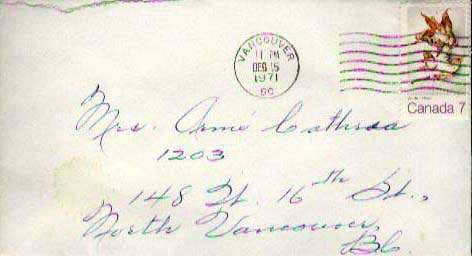 VANCOUVER
11 PM
DEC 15
1971
BC
Canada 7
Mrs.
1203
148 St. 16th St.,
North Vancouver,
BC.